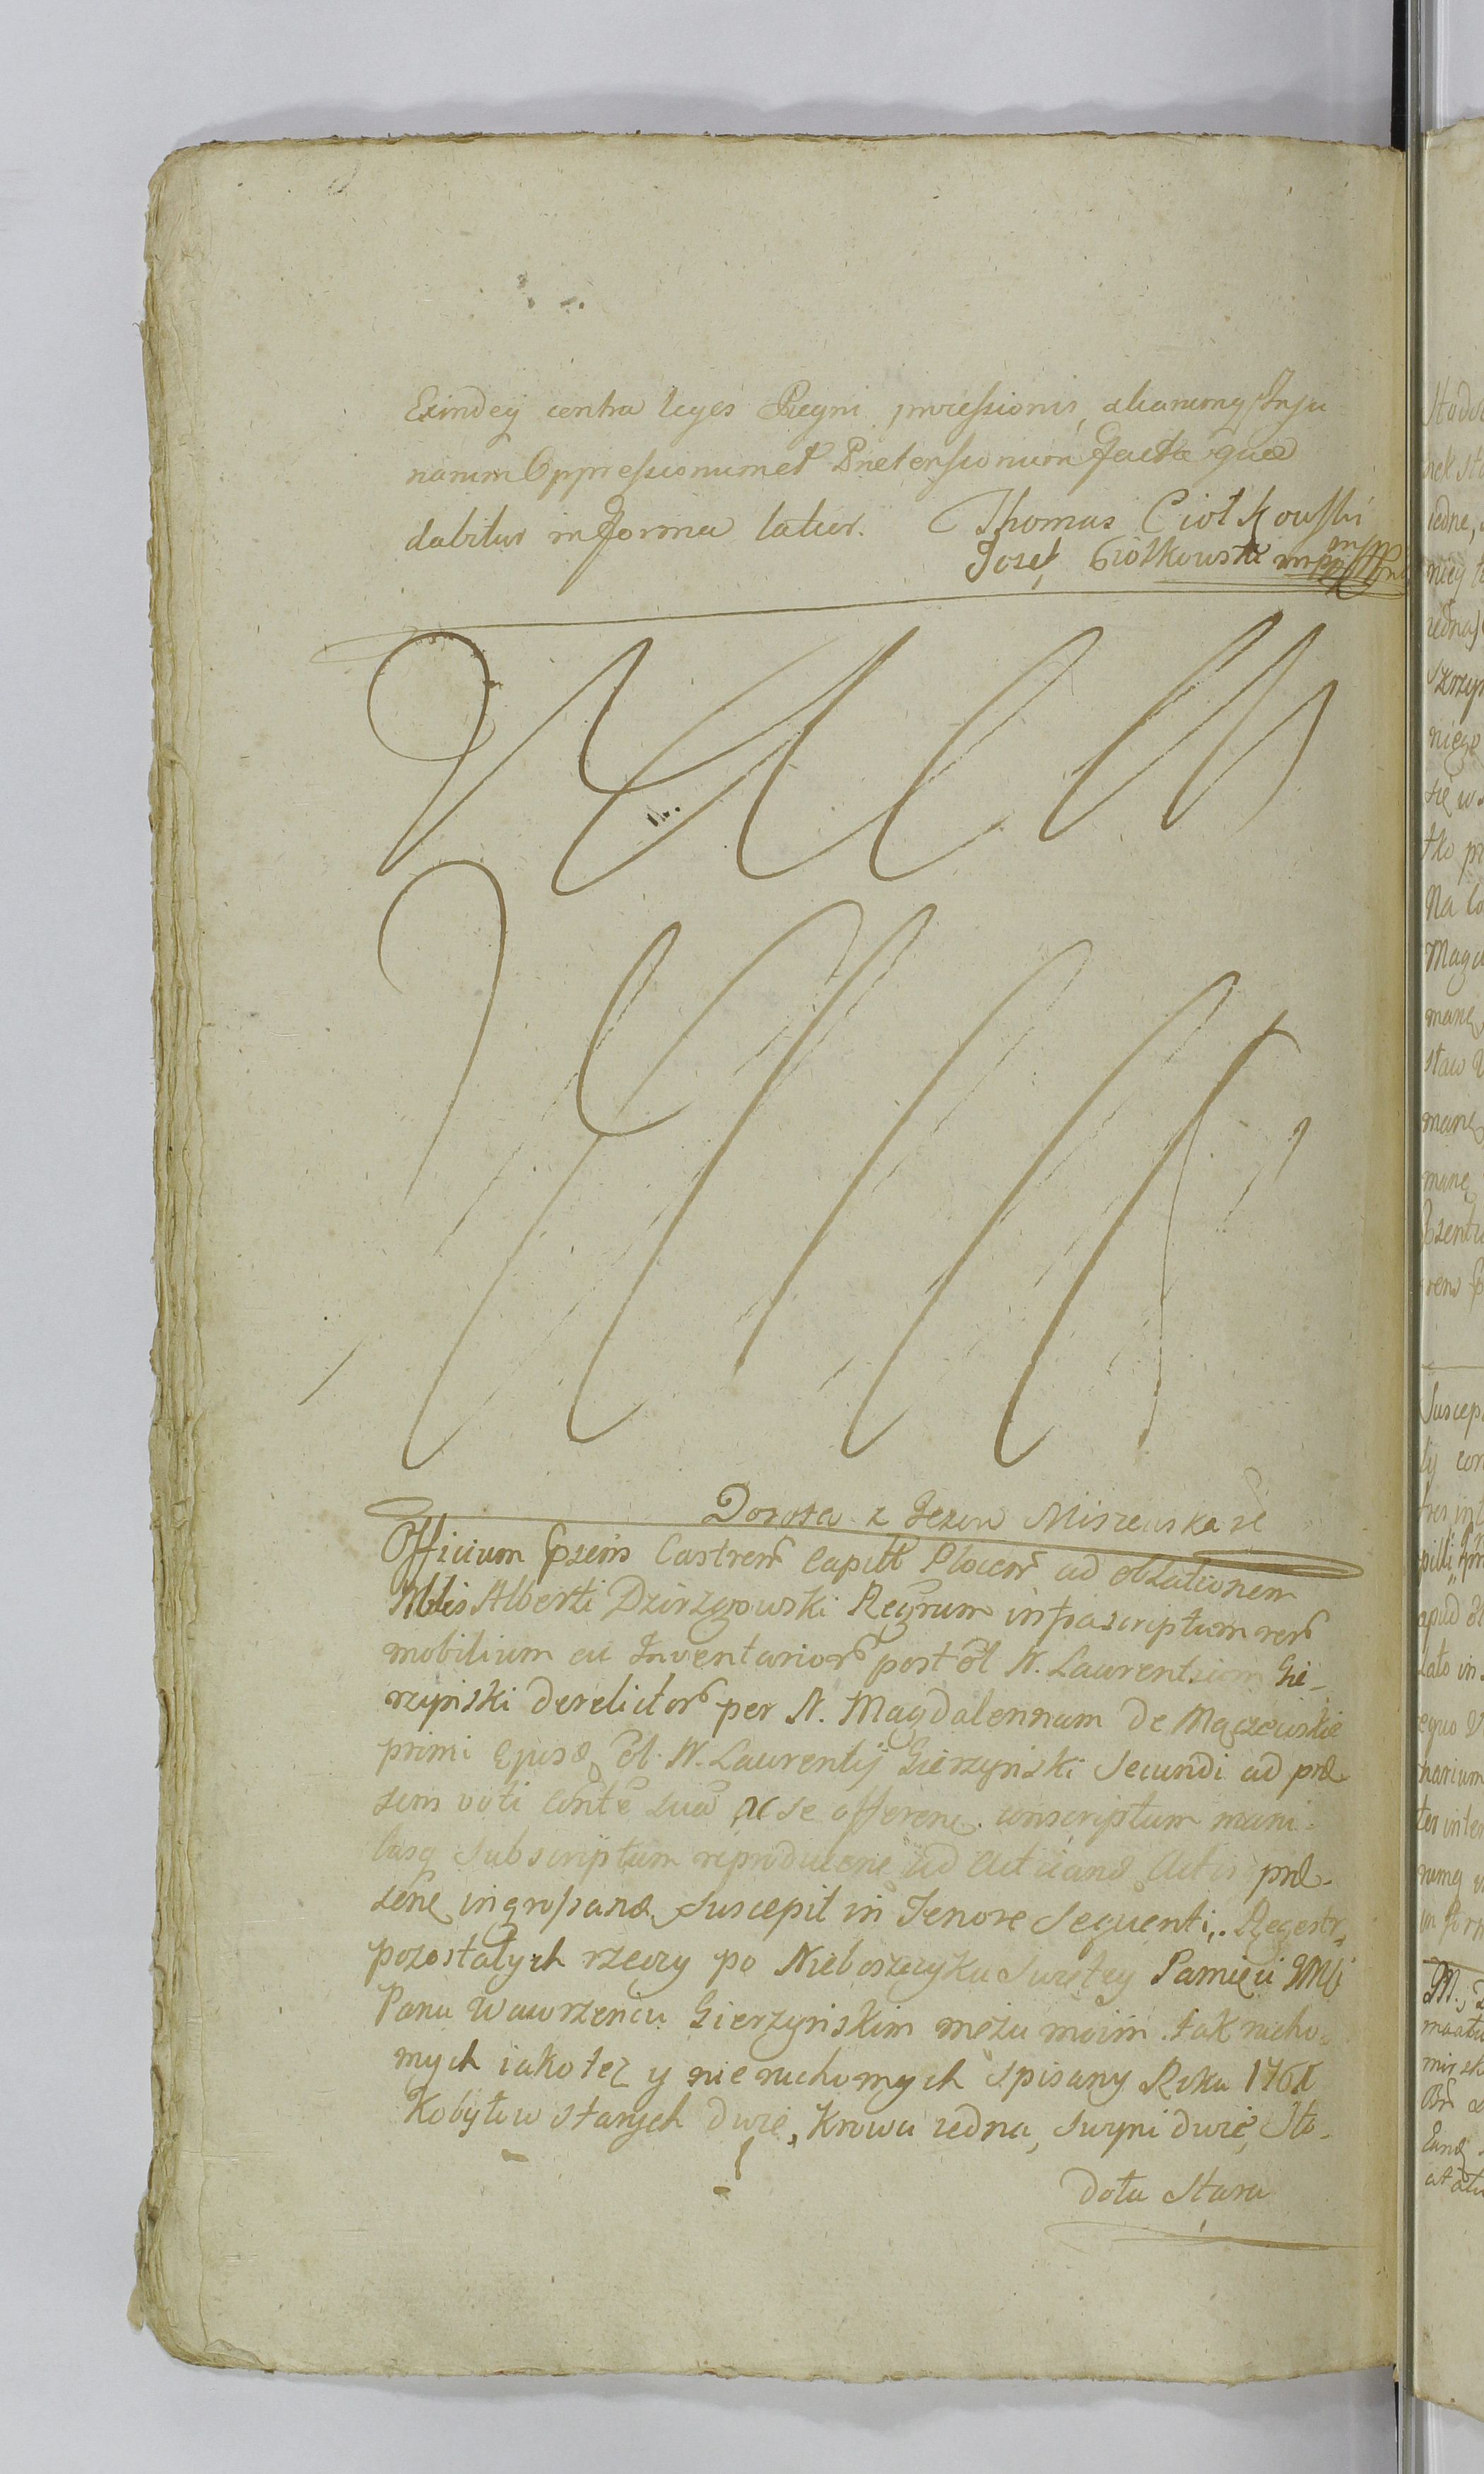 Exindeq contra leges Regni processionis, aliarumq Inju
riarum Oppressionum et Prætensionum facta quæ
dabitur in forma latior. Thomas Ciołkowski
Josef Ciołkowski mpp
Dorota z Jezow Miszewska
Officium præns Castren Capitl Plocen ad oblationem
Nblis Alberti Dzirzgowski Regrum infrascriptum rer
mobilium ac Inventarior post ol N. Laurentium Gie-
rzynski derelictor per N. Magdalennam de Mączewskie
primi Ejusd ol N. Laurentij Gierzynski Secundi ad præ
sens voti Conte sua ac se offeren. conscriptum mani-
busq subscriptum reproducene ad acticand Actis præ-
sene ingrossand suscepit in Tenore Sequenti. Regestr
pozostałych rzeczy po Nieboszczyku Swiętey Pamięci JMci
Panu Wawrzencu Gierzynskim mężu moim tak rucho-
mych iako tez y nie ruchomych spisany Roku 1761
Kobyłow starych dwie, Krowa iedna, swyni dwie, Sto-
doła Stara